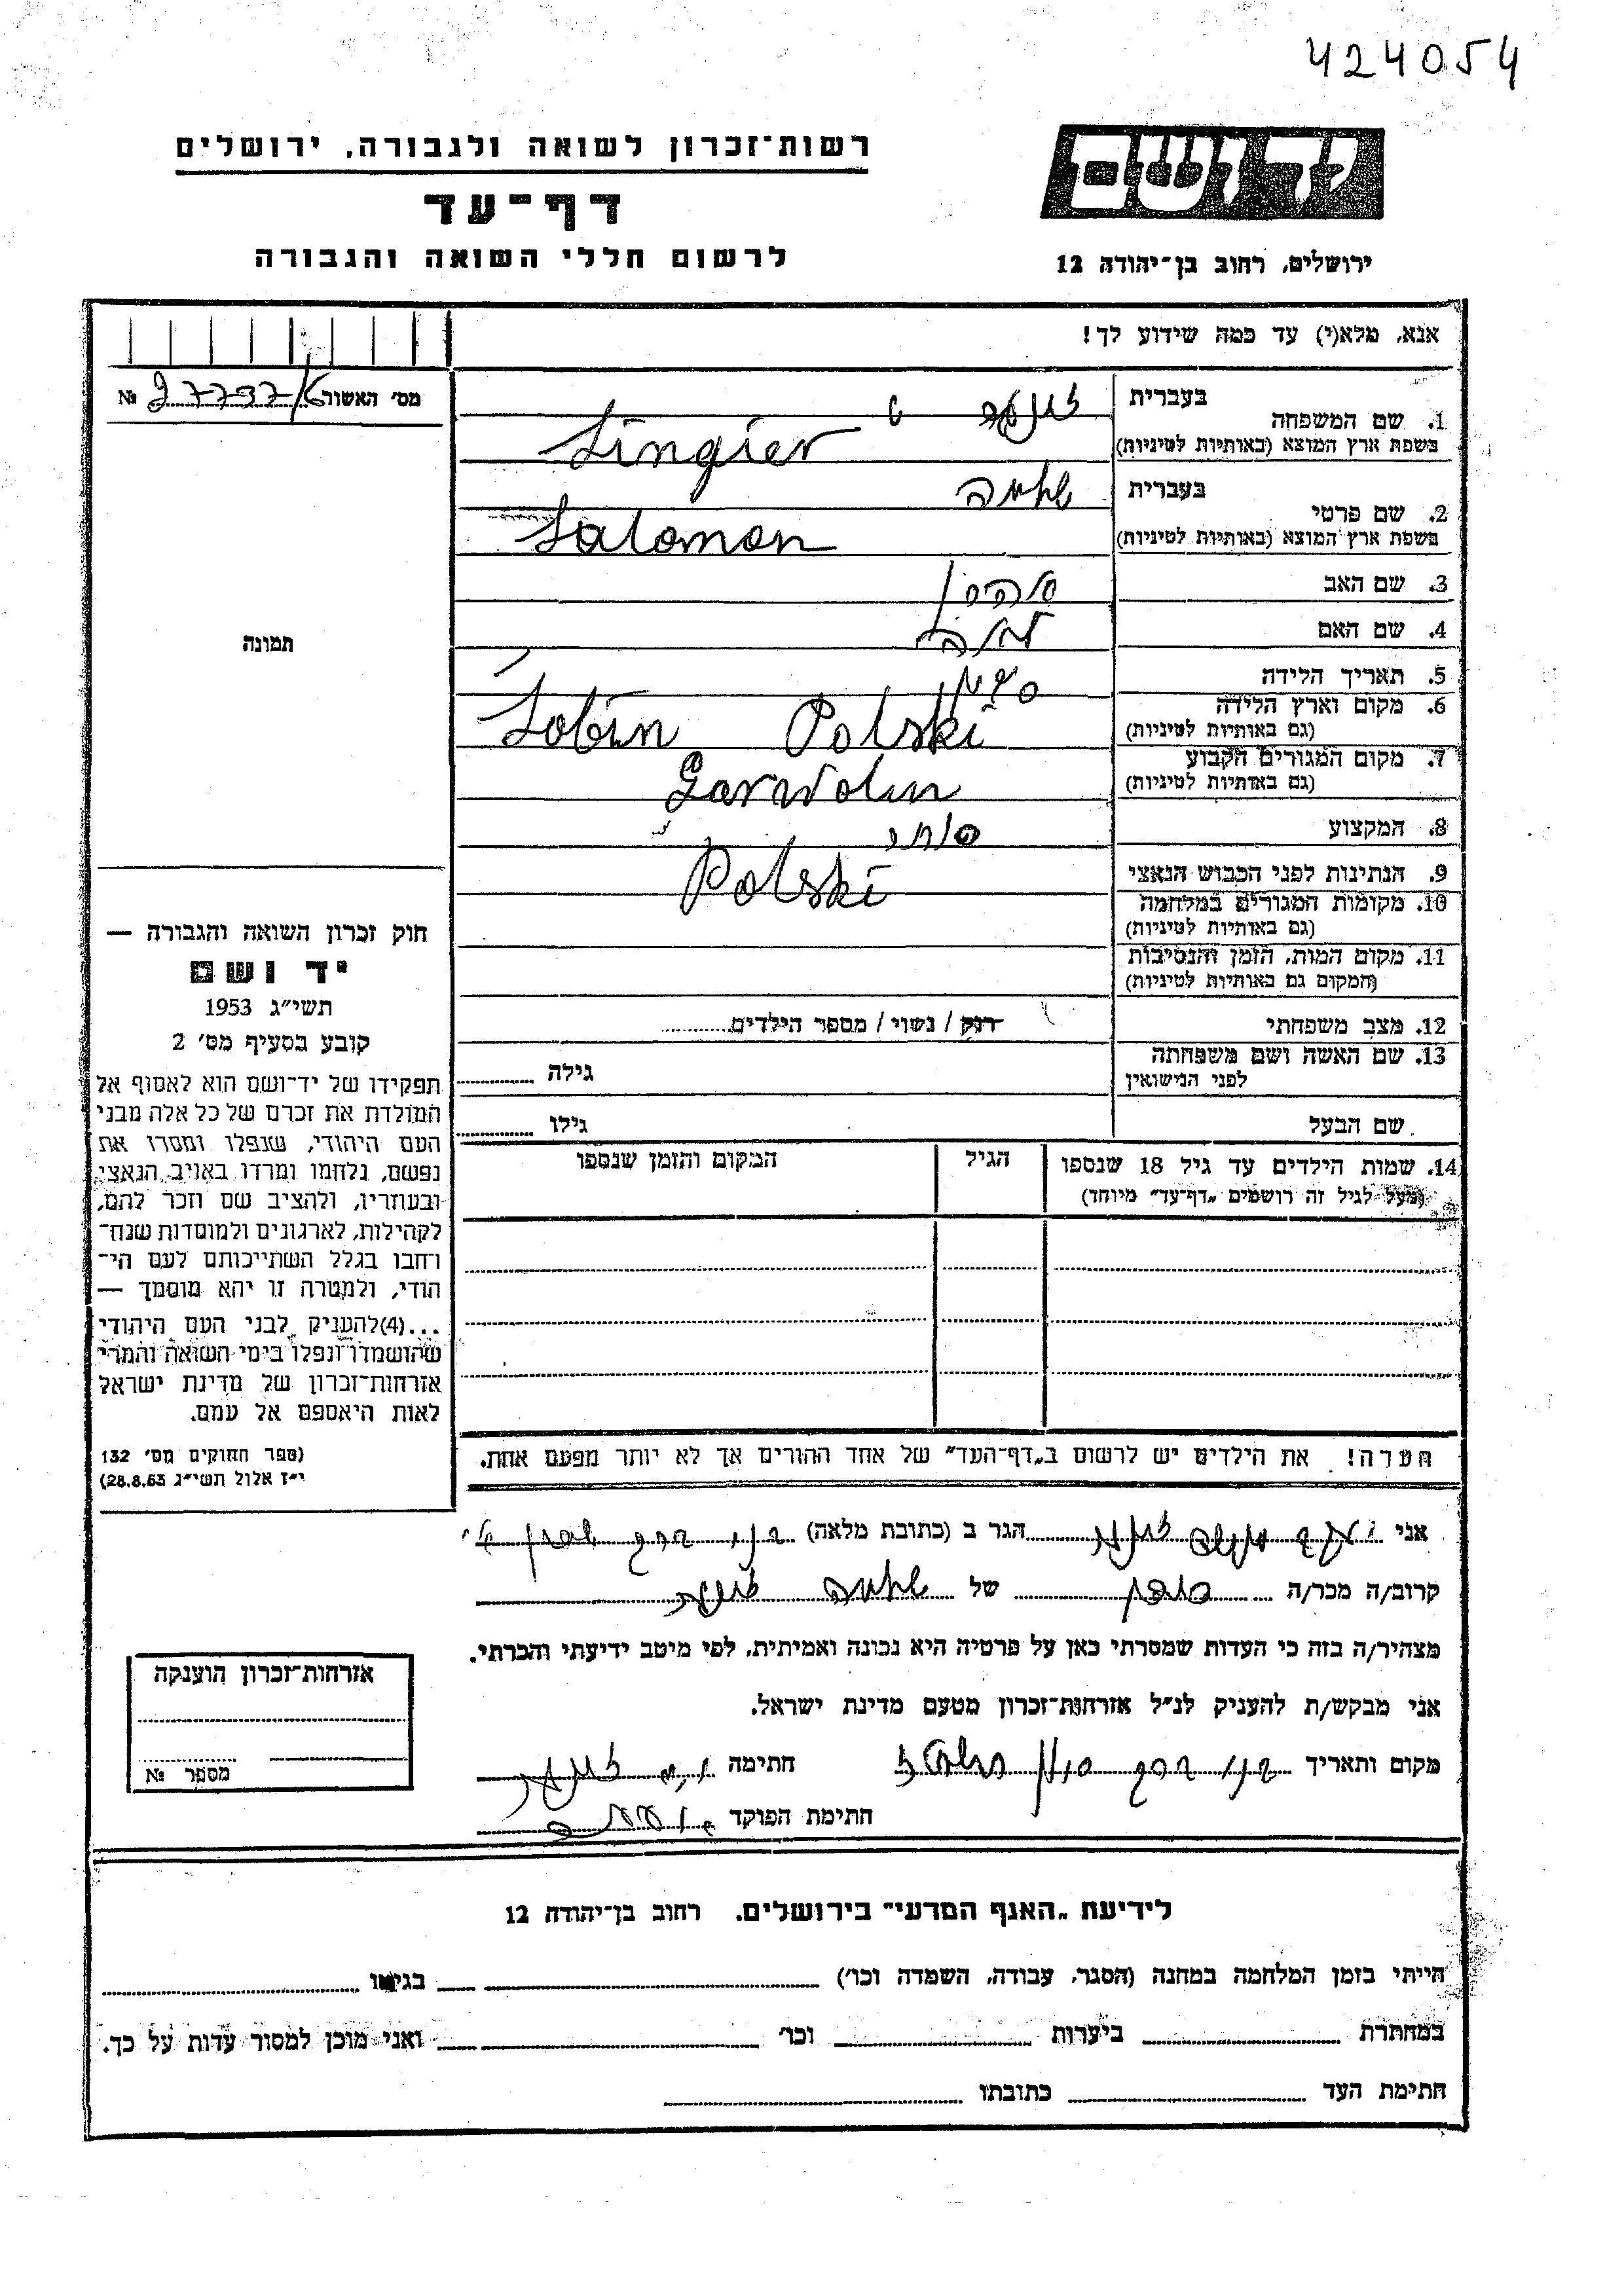 424054
יד ושם
רשות־זכרון לשואה ולגבורה, ירושלים
דף־עד
לרשום חללי השואה והגבורה
ירושלים, רחוב בן־יהודה 12
אנא, מלא(י) עד כמה שידוע לך!
מס׳ האשור №
בעברית
1. שם המשפחה
בשפת ארץ המוצא (באותיות לטיניות) Singier
בעברית שלמה
2. שם פרטי
בשפת ארץ המוצא (באותיות לטיניות) Salomon
3. שם האב
4. שם האם
5. תאריך הלידה
6. מקום וארץ הלידה
(גם באותיות לטיניות) Sobin Polski
7. מקום המגורים הקבוע
(גם באותיות לטיניות) Garwolin
8. המקצוע סוחר
9. הנתינות לפני הכבוש הנאצי Polski
10. מקומות המגורים במלחמה
(גם באותיות לטיניות)
11. מקום המות, הזמן והנסיבות
(המקום גם באותיות לטיניות)
12. מצב משפחתי רוק / נשוי / מספר הילדים
13. שם האשה ושם משפחתה
לפני הנישואין גילה
שם הבעל גילו
14. שמות הילדים עד גיל 18 שנספו הגיל המקום והזמן שנספו
(מעל לגיל זה רושמים „דף־עד״ מיוחד)
הערה! את הילדים יש לרשום ב„דף־העד״ של אחד ההורים אך לא יותר מפעם אחת.
תמונה
חוק זכרון השואה והגבורה —
יד ושם
תשי״ג 1953
קובע בסעיף מס׳ 2
תפקידו של יד־ושם הוא לאסוף אל
המולדת את זכרם של כל אלה מבני
העם היהודי, שנפלו ומסרו את
נפשם, נלחמו ומרדו באויב הנאצי
ובעוזריו, ולהציב שם וזכר להם,
לקהילות, לארגונים ולמוסדות שנח־
רחבו בגלל השתייכותם לעם הי־
הודי, ולמטרה זו יהא מוסמך —
...(4)להעניק לבני העם היהודי
שהושמדו ונפלו בימי השואה והמרי
אזרחות־זכרון של מדינת ישראל
לאות היאספם אל עמם.
(ספר החוקים מס׳ 132
י״ז אלול תשי״ג 28.8.53)
אני הגר ב (כתובת מלאה) בני ברק
קרוב/ה מכר/ה של שלמה
מצהיר/ה בזה כי העדות שמסרתי כאן על פרטיה היא נכונה ואמיתית, לפי מיטב ידיעתי והכרתי.
אני מבקש/ת להעניק לנ״ל אזרחות־זכרון מטעם מדינת ישראל.
מקום ותאריך בני ברק חתימה
חתימת הפוקד
אזרחות־זכרון הוענקה
מספר №
לידיעת „האגף המדעי״ בירושלים, רחוב בן־יהודה 12
הייתי בזמן המלחמה במחנה (הסגר, עבודה, השמדה וכו׳) בגיטו
במחתרת ביערות וכו׳ ואני מוכן למסור עדות על כך.
חתימת העד כתובתו